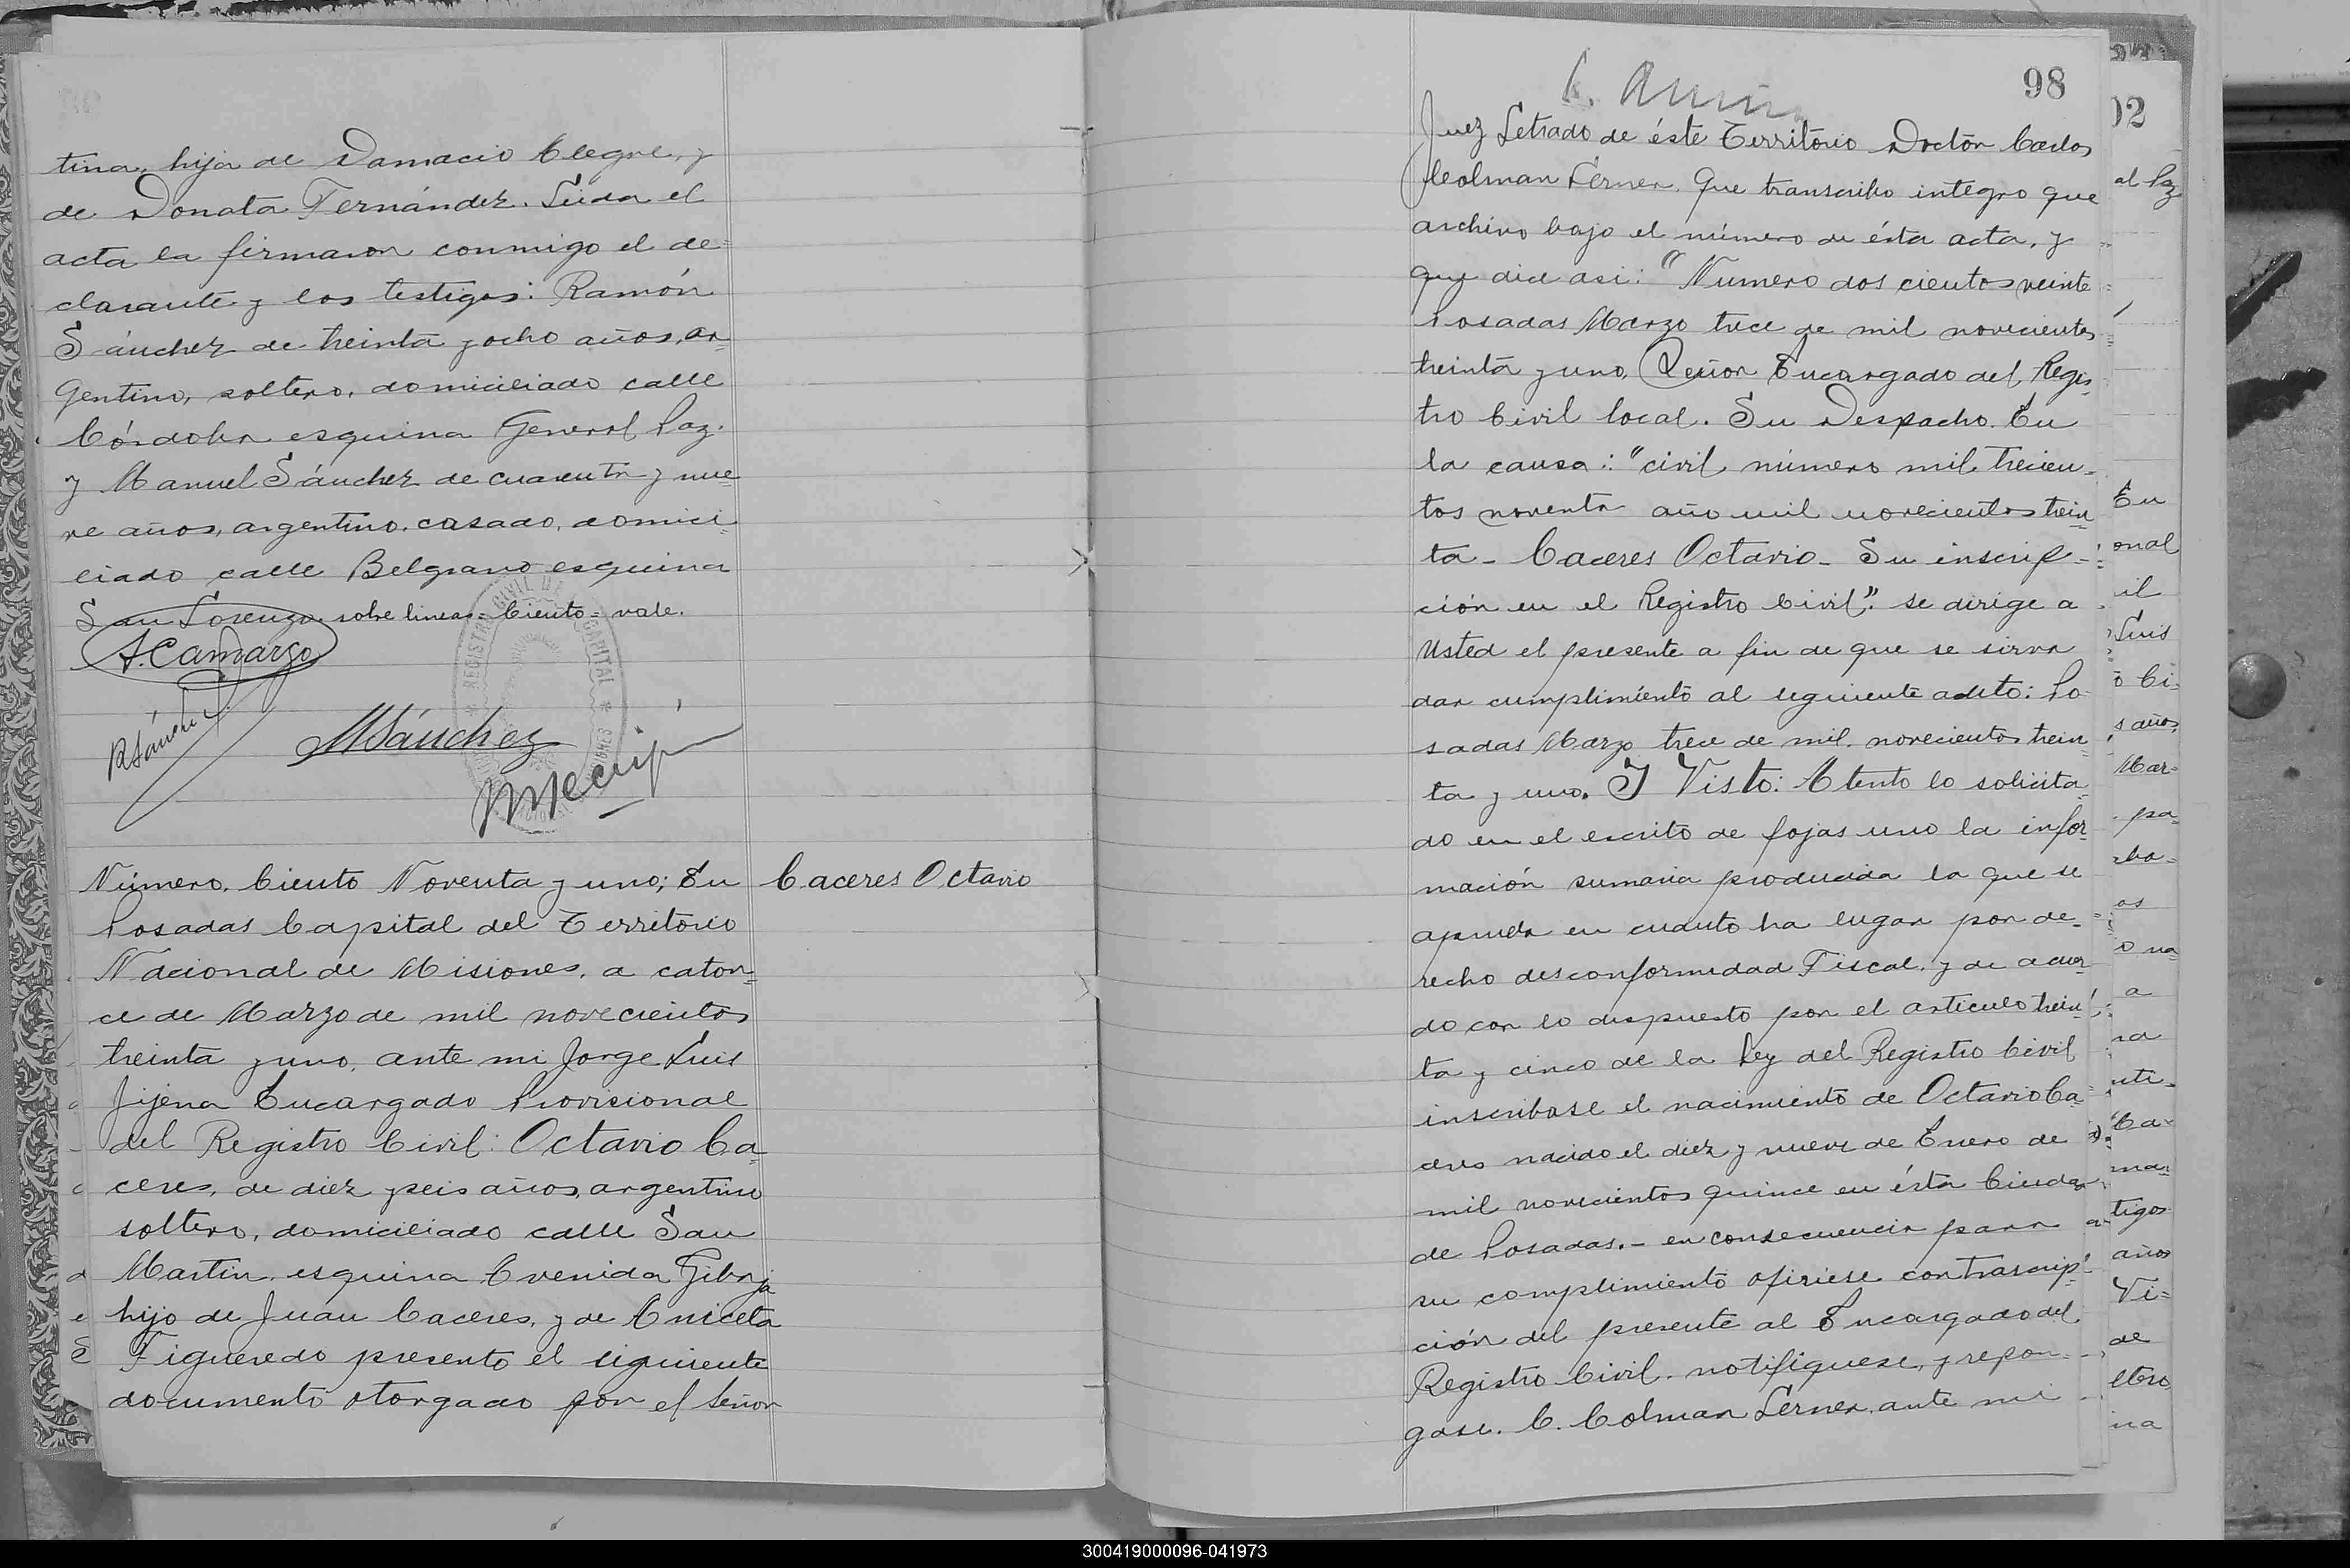 tina, hija de Damacio Alegre, y
de Donata Fernández. Leida el
acta la firmaron conmigo el de=
clarante y los testigos: Ramón
Sánchez de treinta y ocho años, ar=
gentino, soltero, domiciliado calle
Córdoba esquina General Paz.
y Manuel Sánchez de cuarenta y nue=
ve años, argentino, casado, domici=
liado calle Belgrano esquina
San Lorenzo. sobre lineas = Ciento = vale.
A. Camargo
R Sánchez
M Sánchez
Número, Ciento Noventa y uno; En
Caceres Octavio
Posadas Capital del Territorio
Nacional de Misiones, a cator=
ce de Marzo de mil novecientos
treinta y uno, ante mi Jorge Luis
Jijena Encargado Provisional
del Registro Civil: Octavio Ca=
ceres, de diez y seis años, argentino
soltero, domiciliado calle San
Martin, esquina Avenida Gibaja
hijo de Juan Caceres, y de Aniceta
Figueredo presento el siguiente
documento otorgado por el Señor
98
Juez Letrado de éste Territorio Doctor Carlos
Colman Lerner. Que transcribo integro que
archivo bajo el número de ésta acta, y
que dice asi: "Numero dos cientos veinte
Posadas Marzo trece de mil novecientos
treinta y uno, Señor Encargado del Regis
tro Civil local. Su Despacho. En
la causa: "civil número mil trecien=
tos noventa año mil novecientos trein=
ta - Caceres Octavio - Su inscrip=
ción en el Registro Civil". se dirige a
Usted el presente a fin de que se sirva
dar cumplimiento al siguiente auto: Po=
sadas Marzo trece de mil novecientos trein=
ta y uno. Y Visto: Atento lo solicita=
do en el escrito de fojas uno la infor=
mación sumaria producida la que se
aprueba en cuanto ha lugar por de=
recho desconformidad Fiscal, y de acuer=
do con lo dispuesto por el articulo trein=
ta y cinco de la Ley del Registro Civil
inscribase el nacimiento de Octavio Ca=
ceres nacido el diez y nueve de Enero de
mil novecientos quince en ésta Ciudad
de Posadas. - en consecuencia para
su complimiento ofiriese contrascrip=
ción del presente al Encargado del
Registro Civil. notifiquese, y repon=
gase. C. Colman Lerner. ante mi
02
al Paz
En
onal
il
Luis
o Ci=
s años,
Mar=
pa=
as
o na=
a
na
"Ca=
tigos
años
Vi=
de
otro
na
300419000096-041973